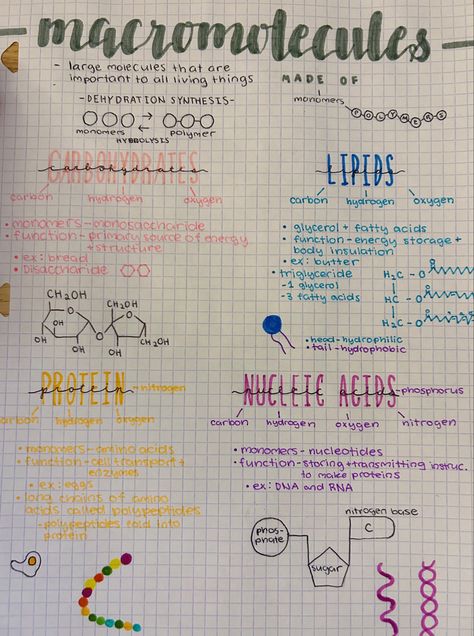 macromolecules
- large molecules that are
important to all living things
MADE OF
monomers
POLYMERS
- DEHYDRATION SYNTHESIS -
monomers
polymer
HYDROLYSIS
CARBOHYDRATES
carbohydrates
carbon hydrogen oxygen
• monomers - monosaccharide
• function - primary source of energy
+ structure
• ex: bread
• Disaccharide
CH₂OH
CH₂OH
O
O
OH
OH
OH
O
OH
OH
CH₂OH
LIPIDS
lipids
carbon hydrogen oxygen
• glycerol + fatty acids
• function - energy storage +
body insulation
• ex: butter
• triglyceride
- 1 glycerol
- 3 fatty acids
H₂C - O
HC - O
H₂C - O
• head - hydrophilic
• tail - hydrophobic
PROTEIN
protein
- nitrogen
carbon hydrogen oxygen
• monomers - amino acids
• function - cell transport +
enzymes
• ex: eggs
• long chains of amino
acids called polypeptides
- polypeptides fold into
protein
NUCLEIC ACIDS
nucleic acids
- phosphorus
carbon hydrogen oxygen nitrogen
• monomers - nucleotides
• function - storing + transmitting instruc.
to make proteins
• ex: DNA and RNA
nitrogen base
phos-
phate
C
sugar